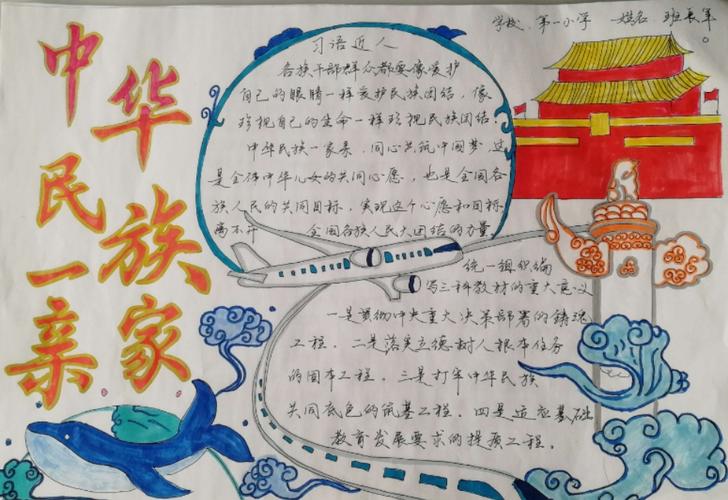 学校：第一小学 姓名 班长军
中华
民族
一家
亲
习语近人
各族干部群众都要像爱护
自己的眼睛一样爱护民族团结，像
珍视自己的生命一样珍视民族团结
中华民族一家亲，同心共筑中国梦，这
是全体中华儿女的共同心愿，也是全国各
族人民的共同目标，实现这个心愿和目标
离不开 全国各族人民大团结的力量
统一组织编
写三科教材的重大意义
一是贯彻中央重大决策部署的铸魂
工程。二是落实立德树人根本任务
的固本工程。三是打牢中华民族
共同底色的筑基工程。四是适应基础
教育发展要求的提质工程。